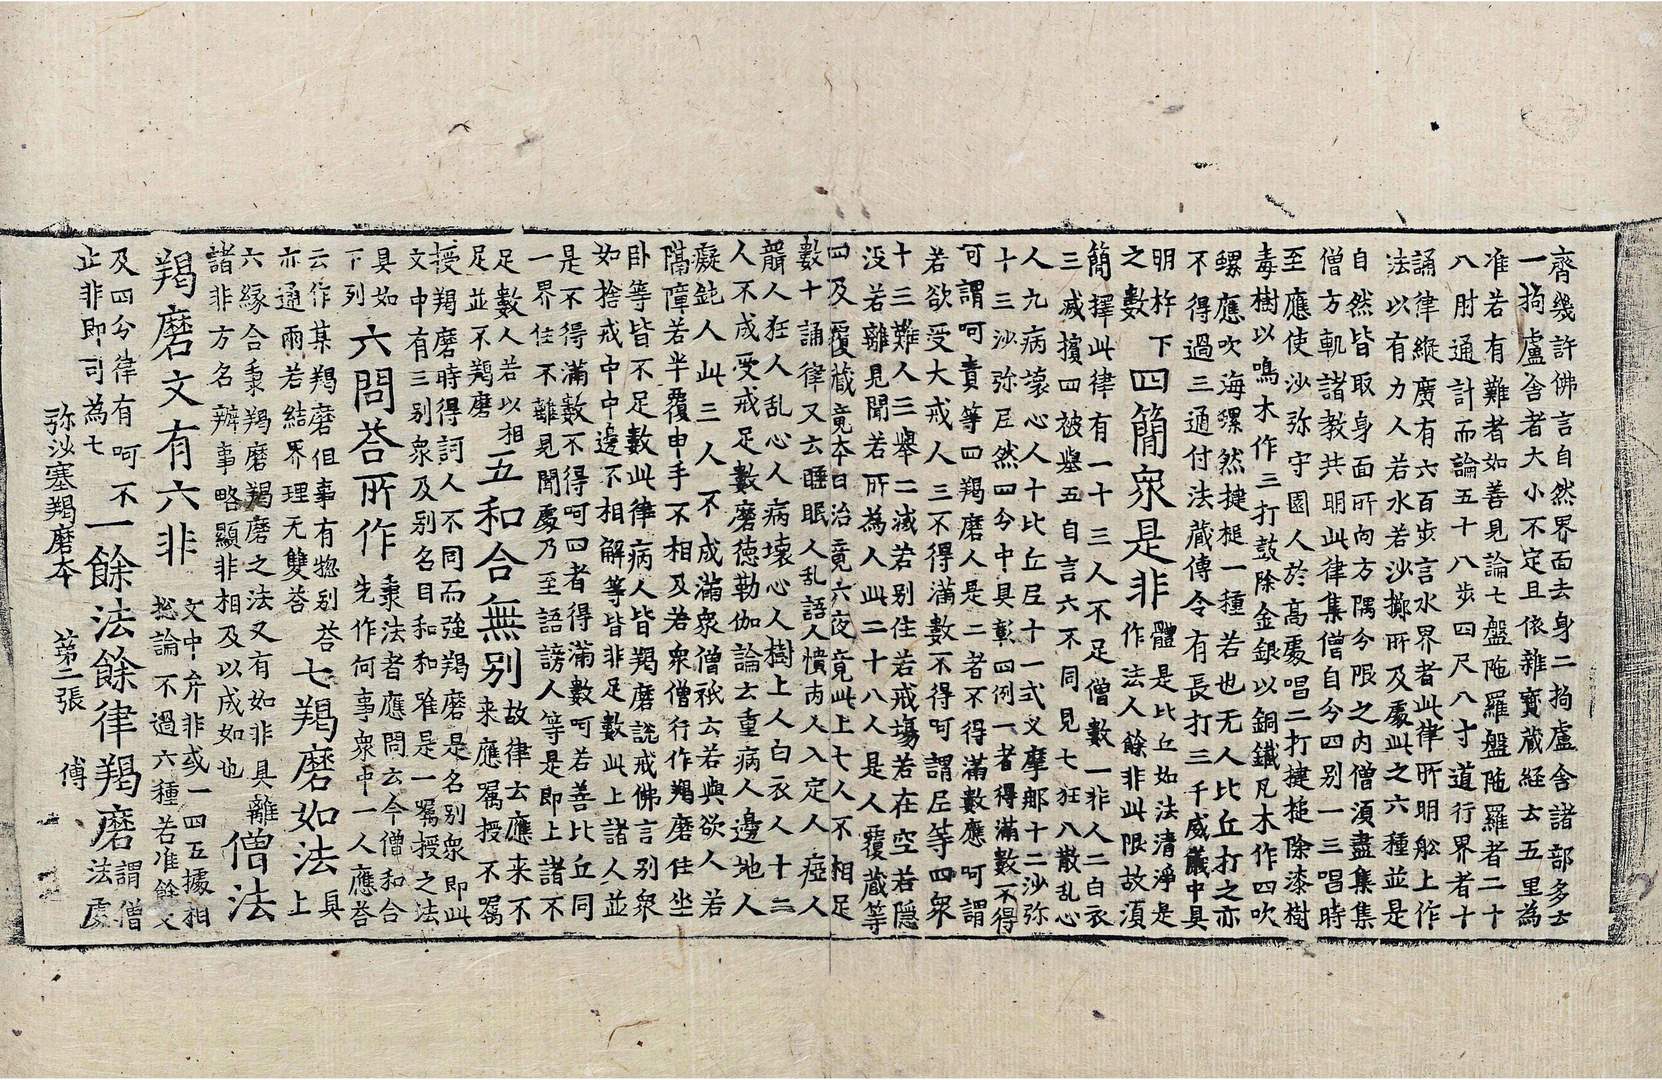 齊幾許佛言自然界面去身二拘盧舍諸部多云
一拘盧舍者大小不定且依雜寶蔵経云五里為
准若有難者如善見論七盤陁羅盤陁羅者二十
八肘通計而論五十八步四尺八寸道行界者十
誦律縱廣有六百步言水界者此律所明舩上作
法以有力人若水若沙擲所及處此之六種並是
自然皆取身面所向方隅今限之内僧湏盡集集
僧方軌諸教共明此律集僧自今四别一三唱時
至應使沙弥守園人於髙處唱二打揵搥除漆樹
毒樹以鳴木作三打鼓除金銀以銅鐵凡木作四吹
螺應吹海螺然揵槌一種若也无人比丘打之亦
不得過三通付法蔵傳令有長打三千威儀中具
明杵下
之數
四簡衆是非
體是比丘如法清淨是
作法人餘非此限故湏
簡擇此律有一十三人不足僧數一非人二白衣
三滅擯四被舉五自言六不同見七狂八散乱心
人九病壞心人十比丘尼十一式叉摩那十二沙弥
十三沙弥尼然四今中具彰四例一者得滿數不得
呵謂呵責等四羯磨人是二者不得滿數應呵謂
若欲受大戒人三不得滿數不得呵謂尼等四衆
十三難人三舉二滅若别住若戒場若在空若隱
没若離見聞若所為人此二十八人是人覆蔵等
四及覆蔵竟本日治竟六夜竟此上七人不相足
數十誦律又云睡眠人乱語人憒丙人入定人瘂人
聾人狂人乱心人病壊心人樹上人白衣人十二
人不成受戒足數磨徳勒伽論云重病人邊地人
癡鈍人此三人不成滿衆僧祇云若與欲人若
隔障若半覆申手不相及若衆僧行作羯磨住坐
卧等皆不足數此律病人皆羯磨說戒佛言别衆
如捨戒中中邊不相解等皆非足數此上諸人並
是不得滿數不得呵四者得滿數呵若善比丘同
一界住不離見聞處乃至語謗人等是即上諸不
足數人若以相
足並不羯磨
五和合無别
故律云應来不
来應囑授不囑
授羯磨時得訶人不同而強羯磨是名别衆即此
文中有三别衆及别名目和和唯是一囑授之法
具如
下列
六問荅所作
秉法者應問云今僧和合
先作何事衆中一人應荅
云作某羯磨但事有惣别荅
亦通兩若結界理无雙荅
七羯磨如法
具
上
六緣合秉羯磨羯磨之法又有如非具離
諸非方名辨事略顯非相及以成如也
僧法
羯磨文有六非
文中弁非或一四五據相
捴論不過六種若准餘文
及四分律有呵不
止非即司為七
一餘法餘律羯磨
謂僧
法處
弥沙塞羯磨本 第二張 傅